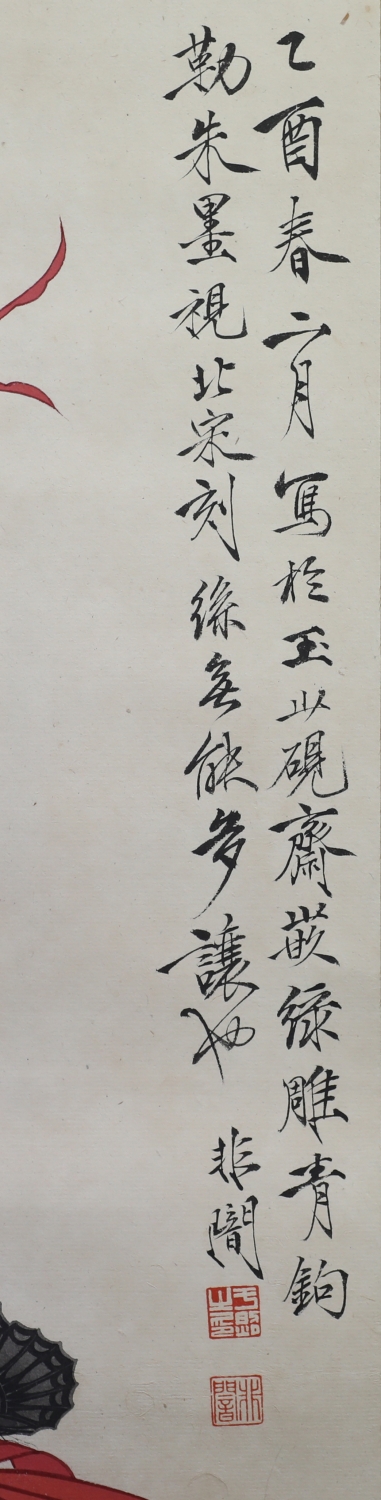 乙酉春二月寫於玉山硯齋嵌綠雕青鉤
勒朱墨視北宋刻絲無能多讓也
非闇
于照之印
非闇